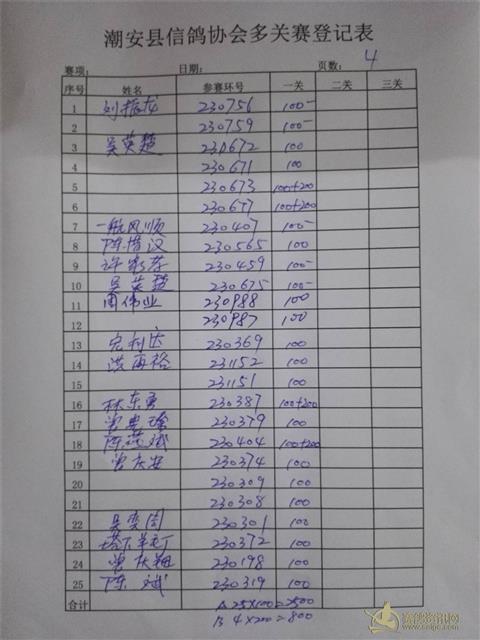 潮安县信鸽协会多关赛登记表
赛项: 日期: 页数: 4
序号 姓名 参赛环号 一关 二关 三关
1 刘振龙 230756 100-
2 230759 100-
3 吴英楚 230672 100
4 230671 100
5 230673 100+200
6 230677 100+200
7 一帆风顺 230407 100-
8 陈惜汉 230565 100
9 许 230459 100-
10 吴英楚 230675 100-
11 周伟业 230988 100
12 230987 100
13 宏利达 230369 100
14 洪再裕 231152 100
15 231151 100
16 林东勇 230387 100+200
17 曾 230379 100
18 陈 斌 230404 100+200
19 曾庆安 230374 100
20 230309 100
21 230308 100
22 吴奕周 230301 100
23 塔下 230372 100
24 曾庆翔 230198 100
25 陈 斌 230319 100
合计 A 25×100=2500
B 4×200=800